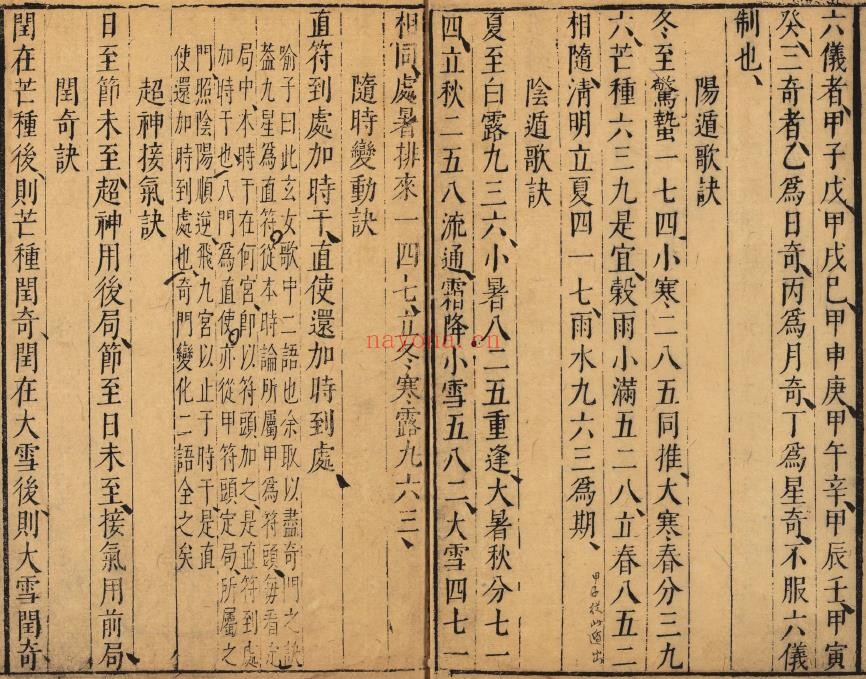 六儀者、甲子戊、甲戌巳、甲申庚、甲午辛、甲辰壬、甲寅
癸、三奇者、乙爲日奇、丙爲月奇、丁爲星奇、不服六儀
制也、
陽遁歌訣
冬至驚蟄一七四、小寒二八五同推、大寒春分三九
六、芒種六三九是宜、穀雨小滿五二八、立春八五二
相隨、淸明立夏四一七、雨水九六三爲期、
甲子從此遁出
陰遁歌訣
夏至白露九三六、小暑八二五重逢、大暑秋分七一
四、立秋二五八流通、霜降小雪五八二、大雪四七一
相同、處暑排來一四七、立冬寒露九六三、
隨時變動訣
直符到處加時干、直使還加時到處、
喻子曰此玄女歌中二語也余取以盡奇門之訣
葢九星爲直符、從本時論所屬甲爲符頭、每看
局中、本時干在何宮、卽以符頭加之、是直符到處
加時干也、八門爲直使、亦從甲符頭定局、所屬之
門、照陰陽順逆、飛九宮以止于時干、是直
使還加時到處也、奇門變化二語全之矣
超神接氣訣
日至節未至、超神用後局、節至日未至、接氣用前局、
閏奇訣
閏在芒種後、則芒種閏奇、閏在大雪後、則大雪閏奇
nayona.cn